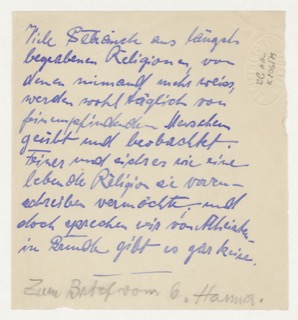 Viele Bräuche aus längst
begrabenen Religionen, von
denen niemand mehr weiss,
werden wohl täglich von
feinempfindenden Menschen
geübt und beobachtet.
Feiner und es wie eine
lebendige Religion sie vorzu-
schreiben vermöchte, – und
doch sprechen wir von Atheisten
im Grunde gibt es gar keine.
Zum Brief vom 6. Hanna.